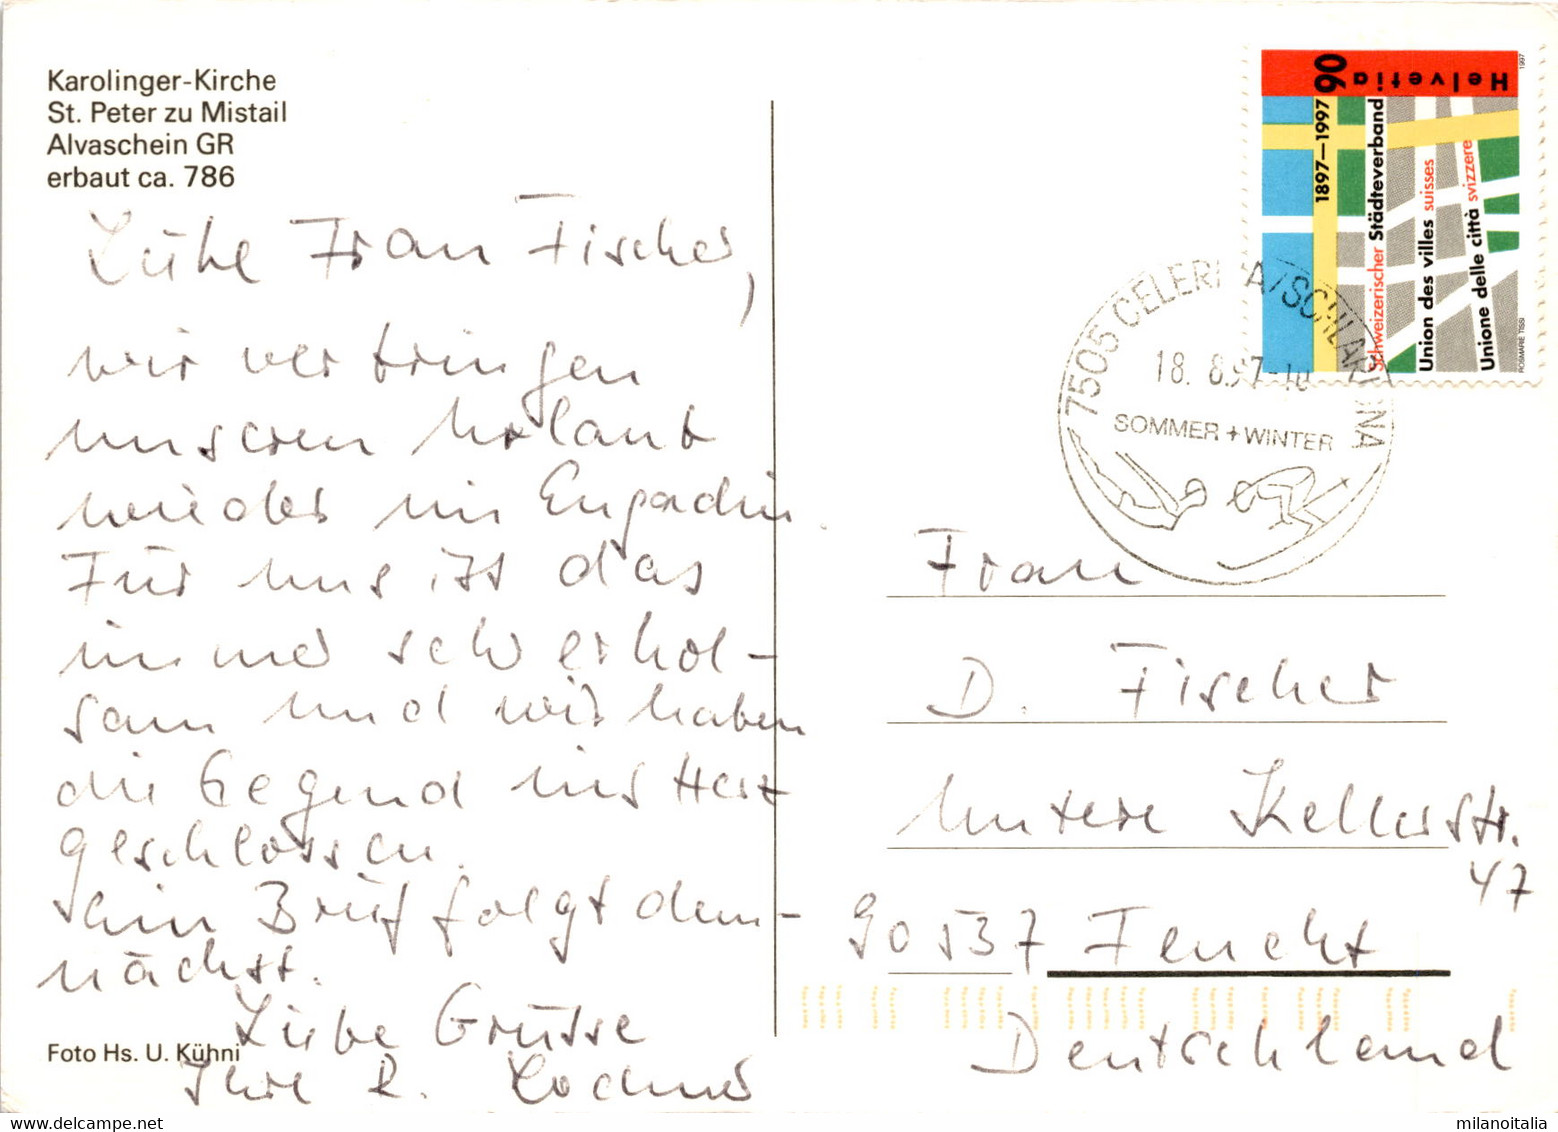 Karolinger-Kirche
St. Peter zu Mistail
Alvaschein GR
erbaut ca. 786
Liebe Frau Fischer,
wir verbringen
unseren Urlaub
wieder im Engadin.
Für uns ist das
immer sehr erhol-
sam und wir haben
die Gegend ins Herz
geschlossen.
Ein Brief folgt dem-
nächst.
Liebe Grüsse
Ihre R.
Foto Hs. U. Kühni
Helvetia 90
1997
1897–1997
Schweizerischer Städteverband
Union des villes suisses
Unione delle città svizzere
ROSMARIE TISSI
7505 CELERINA/SCHLARIGNA
18. 8.97-10
SOMMER + WINTER
Frau
D. Fischer
Untere Kellerstr.
47
90537 Feucht
Deutschland
milanoitalia